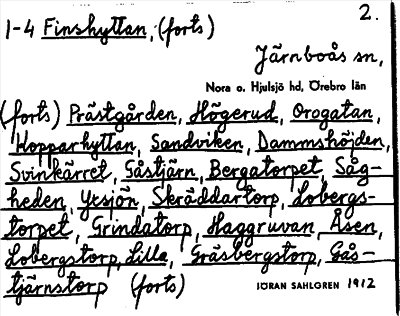 2.
1-4 Finshyttan, (forts)
Järnboås sn,
Nora o. Hjulsjö hd, Örebro län
(forts) Prästgården, Högerud, Orogatan,
Kopparhyttan, Sandviken, Dammshöjden,
Svinkärret, Gåstjärn, Bergatorpet, Såg-
heden, Yxsjön, Skräddartorp, Lobergs-
torpet, Grindatorp, Haggruvan, Åsen,
Lobergstorp, Lilla, Gräsbergstorp, Gås-
tjärnstorp (forts)
JÖRAN SAHLGREN 1912